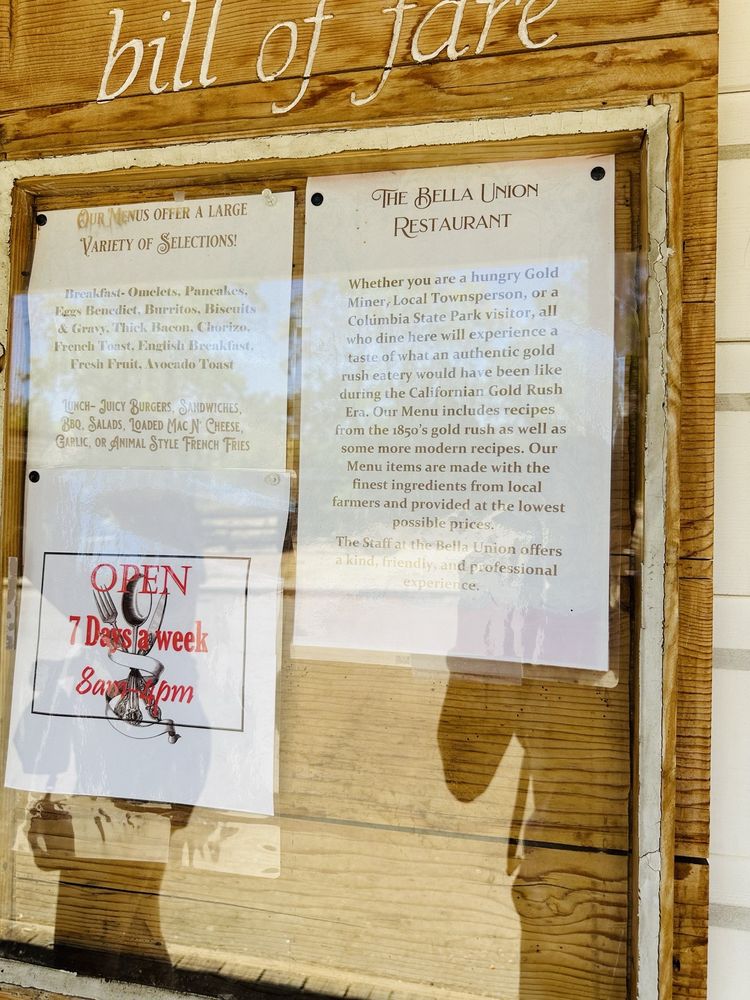 bill of fare
Our Menus offer a large
Variety of Selections!
Breakfast- Omelets, Pancakes,
Eggs Benedict, Burritos, Biscuits
& Gravy, Thick Bacon, Chorizo,
French Toast, English Breakfast,
Fresh Fruit, Avocado Toast
Lunch- Juicy Burgers, Sandwiches,
BBQ, Salads, Loaded Mac N' Cheese,
Garlic, or Animal Style French Fries
OPEN
7 Days a week
8am-4pm
The Bella Union
Restaurant
Whether you are a hungry Gold
Miner, Local Townsperson, or a
Columbia State Park visitor, all
who dine here will experience a
taste of what an authentic gold
rush eatery would have been like
during the Californian Gold Rush
Era. Our Menu includes recipes
from the 1850's gold rush as well as
some more modern recipes. Our
Menu items are made with the
finest ingredients from local
farmers and provided at the lowest
possible prices.
The Staff at the Bella Union offers
a kind, friendly, and professional
experience.